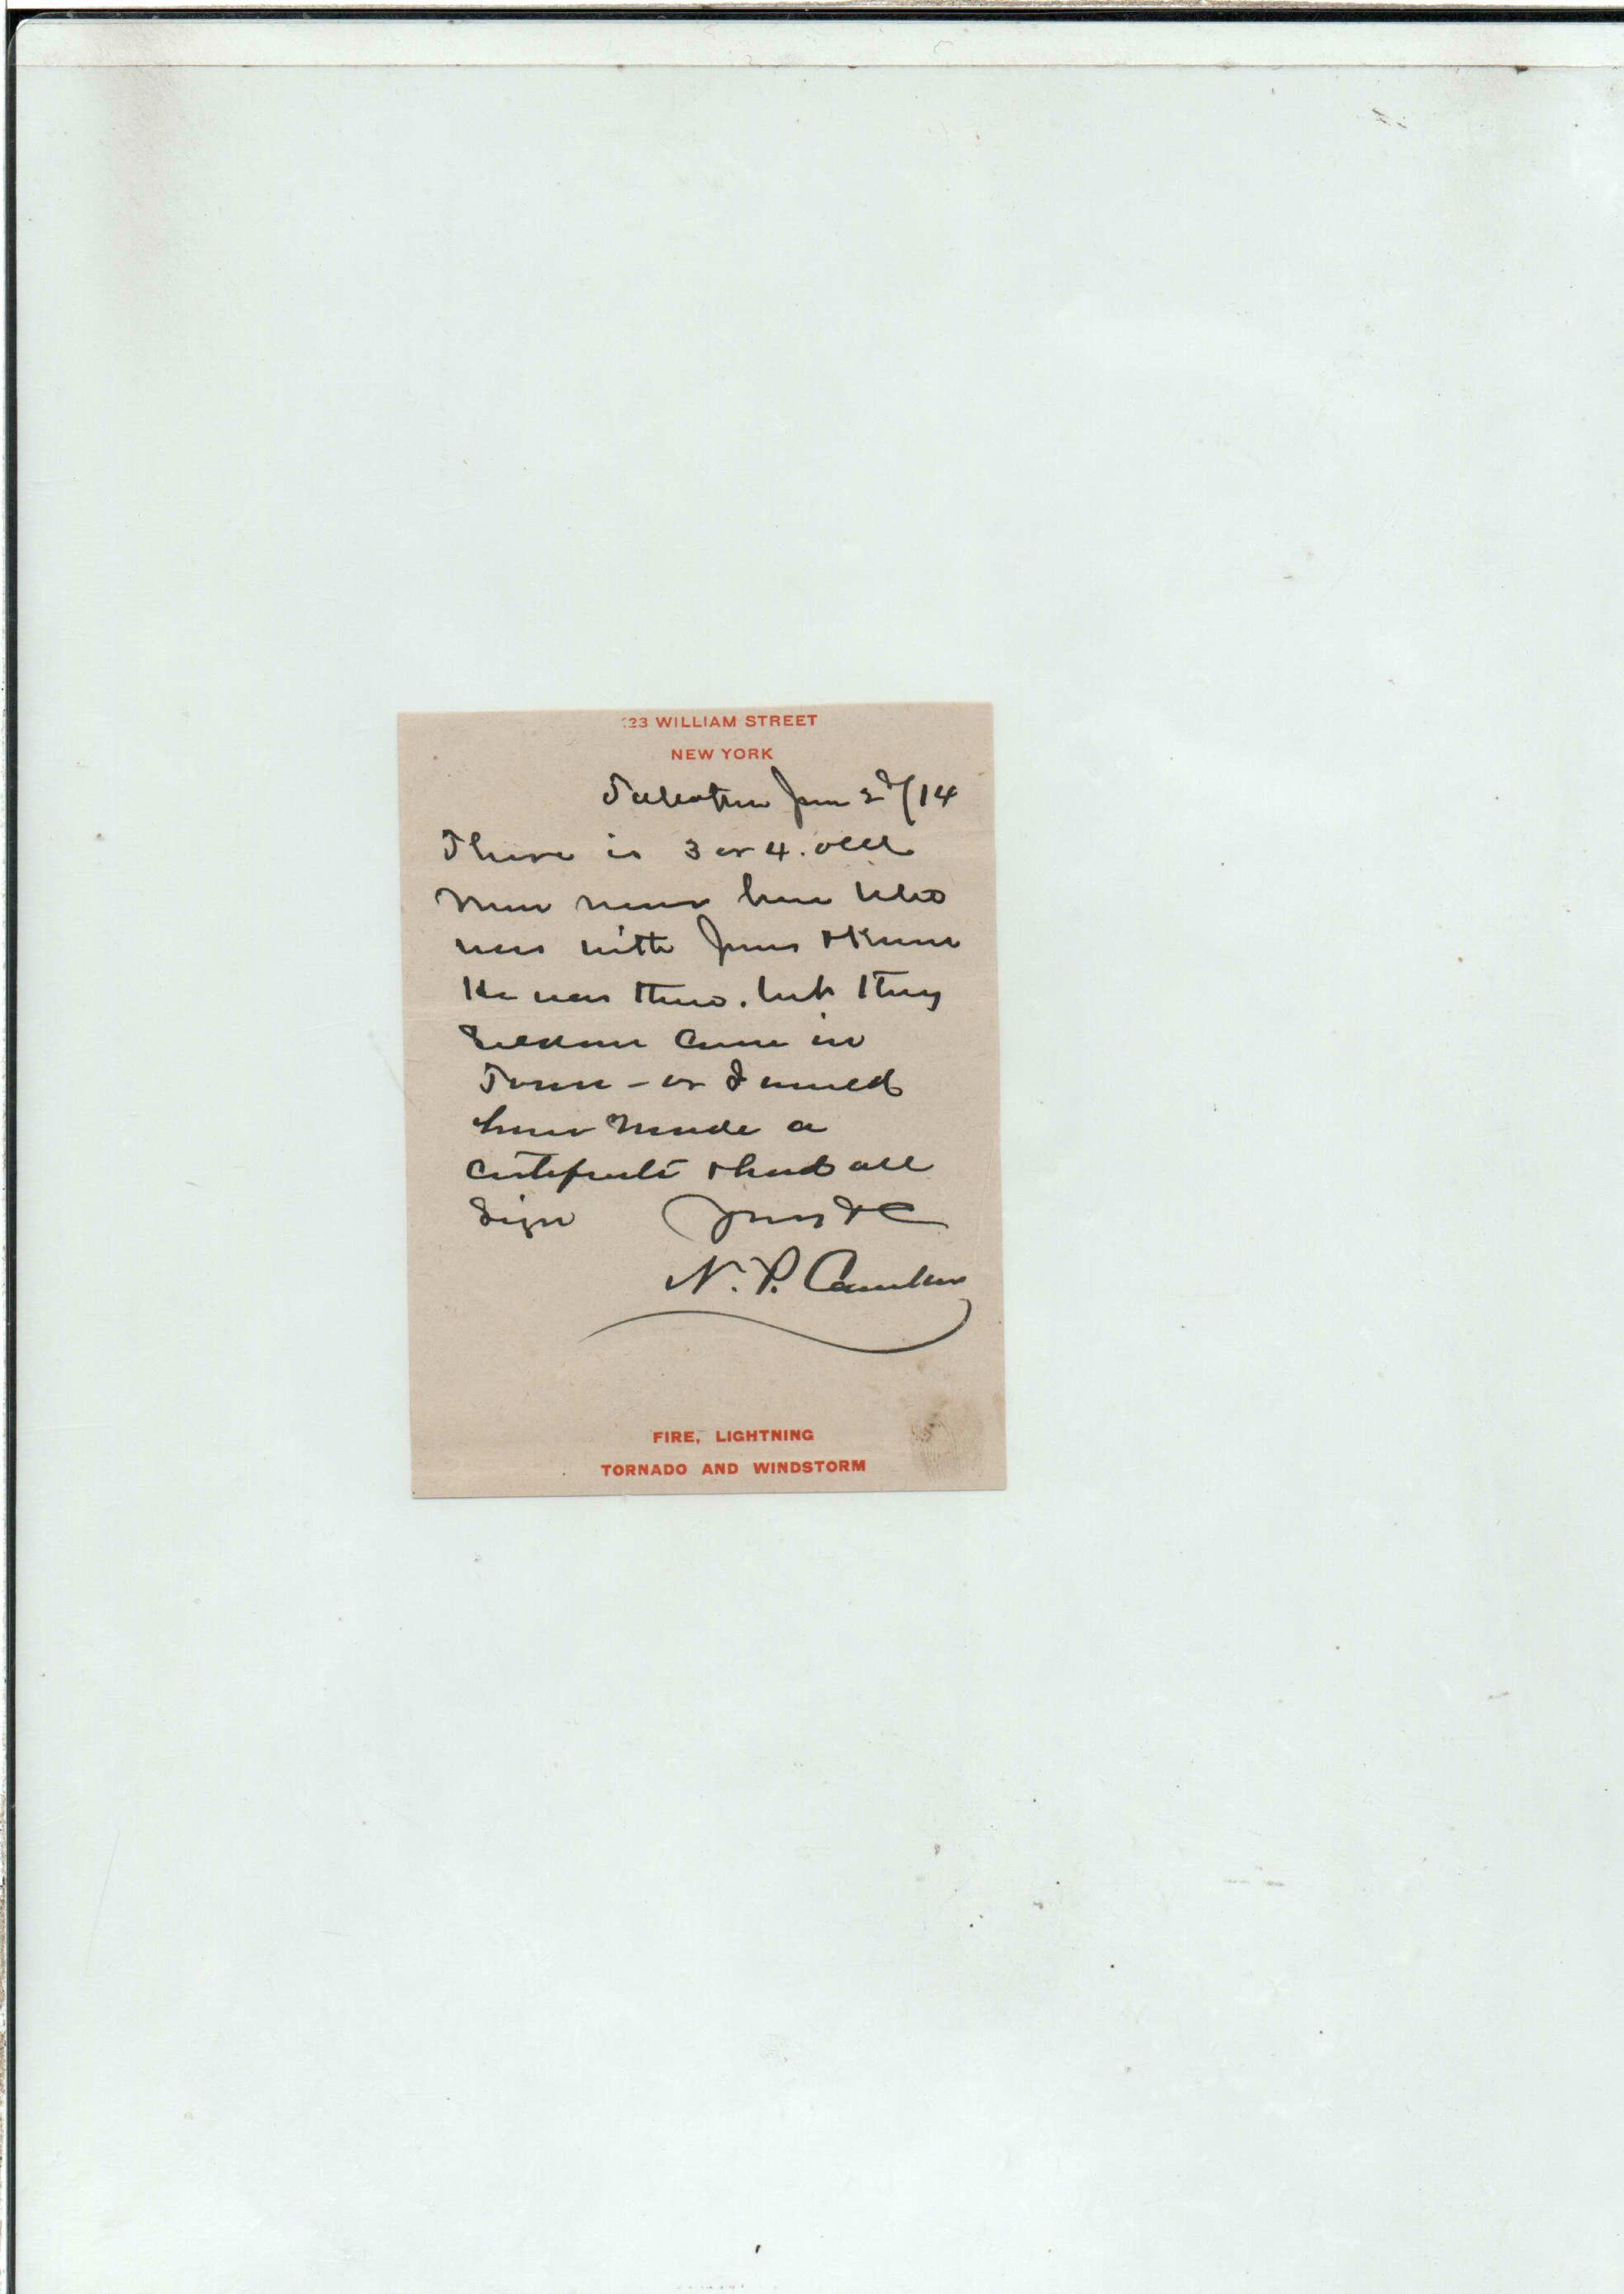 23 WILLIAM STREET
NEW YORK
Jan 2d/14
There is 3 or 4 old
men near here who
was with Jones & Knew
He was there. but they
Seldom Come in
Town - or I would
have made a
certificate & had all
Sign Yours &C
N. P.
FIRE, LIGHTNING
TORNADO AND WINDSTORM